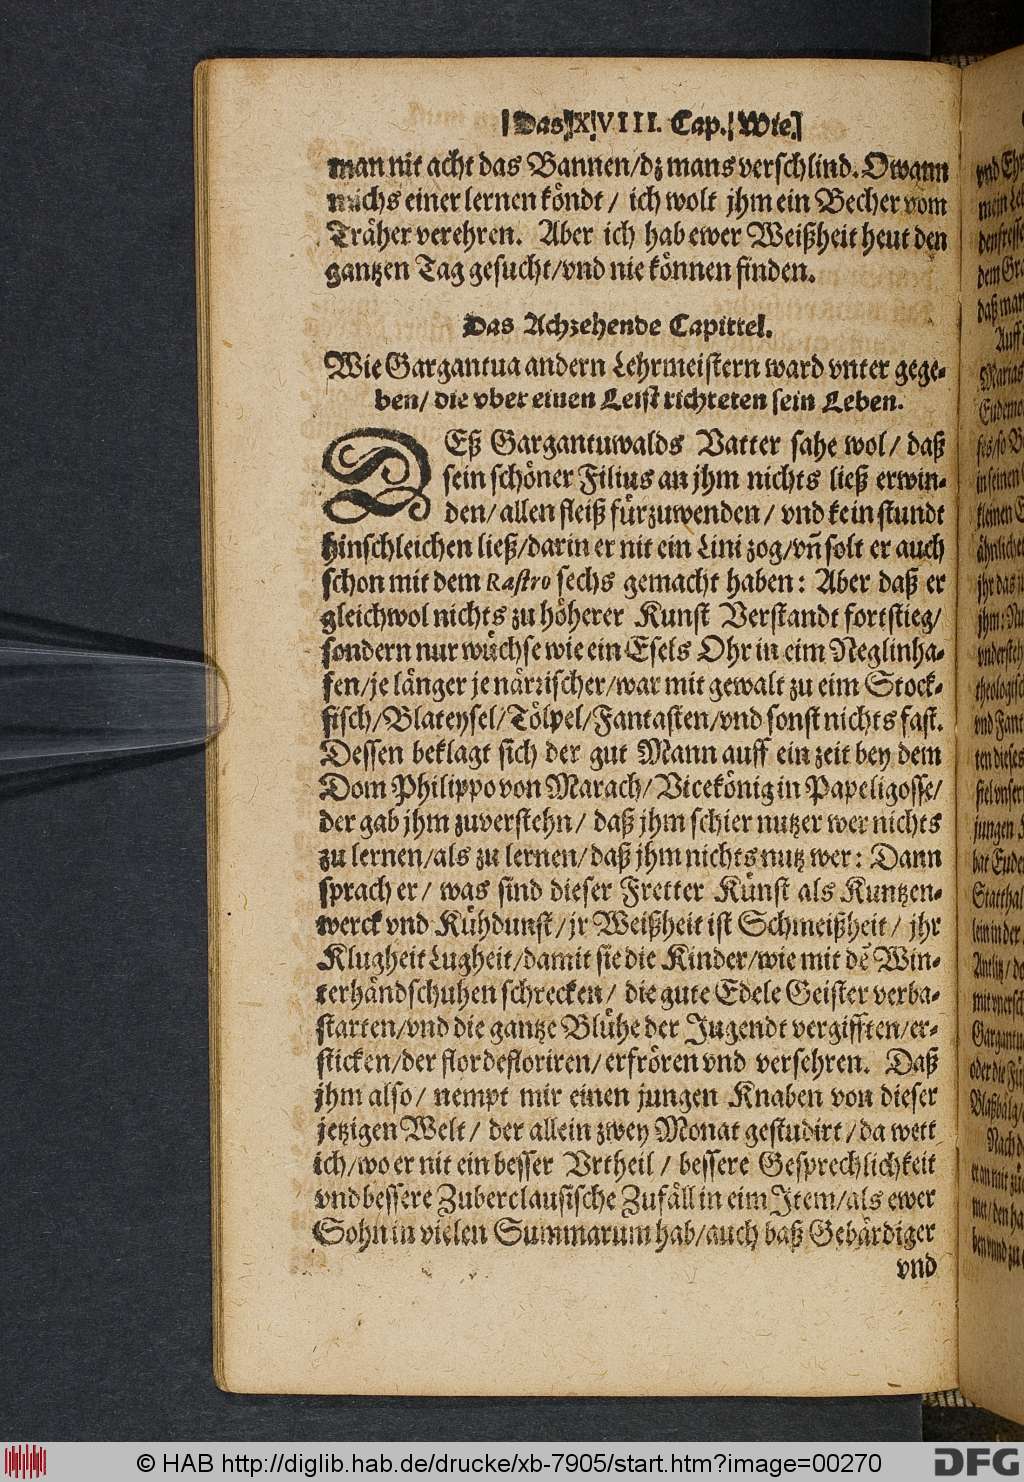 Das XVIII. Cap. Wie
man nit acht das Bannen/dz mans verschlind. O wann
michs einer lernen köndt / ich wolt jhm ein Becher vom
Träher verehren. Aber ich hab ewer Weißheit heut den
gantzen Tag gesucht/vnd nie können finden.
Das Achzehende Capittel.
Wie Gargantua andern Lehrmeistern ward vnter gege-
ben/ die vber einen Leist richteten sein Leben.
DEß Gargantuwalds Vatter sahe wol/ daß
sein schöner Filius an jhm nichts ließ erwin-
den/ allen fleiß fürzuwenden/ vnd kein stundt
hinschleichen ließ/darin er nit ein Lini zog/vñ solt er auch
schon mit dem Rastro sechs gemacht haben: Aber daß er
gleichwol nichts zu höherer Kunst Verstandt fortstieg/
sondern nur wüchse wie ein Esels Ohr in eim Neglinha-
fen/je länger je närrischer/war mit gewalt zu eim Stock-
fisch/Blateysel/Tölpel/Fantasten/vnd sonst nichts fast.
Dessen beklagt sich der gut Mann auff ein zeit bey dem
Dom Philippo von Marach/ Vicekönig in Papeligosse/
der gab jhm zuverstehn/ daß jhm schier nutzer wer nichts
zu lernen/als zu lernen/daß jhm nichts nutz wer: Dann
sprach er/ was sind dieser Fretter Künst als Kuntzen-
werck vnd Kühdunst/jr Weißheit ist Schmeißheit/ jhr
Klugheit Lugheit/damit sie die Kinder/wie mit dẽ Win-
terhändschuhen schrecken/ die gute Edele Geister verba-
starten/vnd die gantze Blühe der Jugendt vergifften/er-
sticken/der flor defloriren/ erfrören vnd versehren. Daß
jhm also/ nempt mir einen jungen Knaben von dieser
jetzigen Welt/ der allein zwey Monat gestudirt/da wett
ich/wo er nit ein besser Vrtheil / bessere Gesprechlichkeit
vnd bessere Zuberclausische Zufäll in eim Item/als ewer
Sohn in vielen Summarum hab/auch baß Gebärdiger
vnd
© HAB http://diglib.hab.de/drucke/xb-7905/start.htm?image=00270
DFG